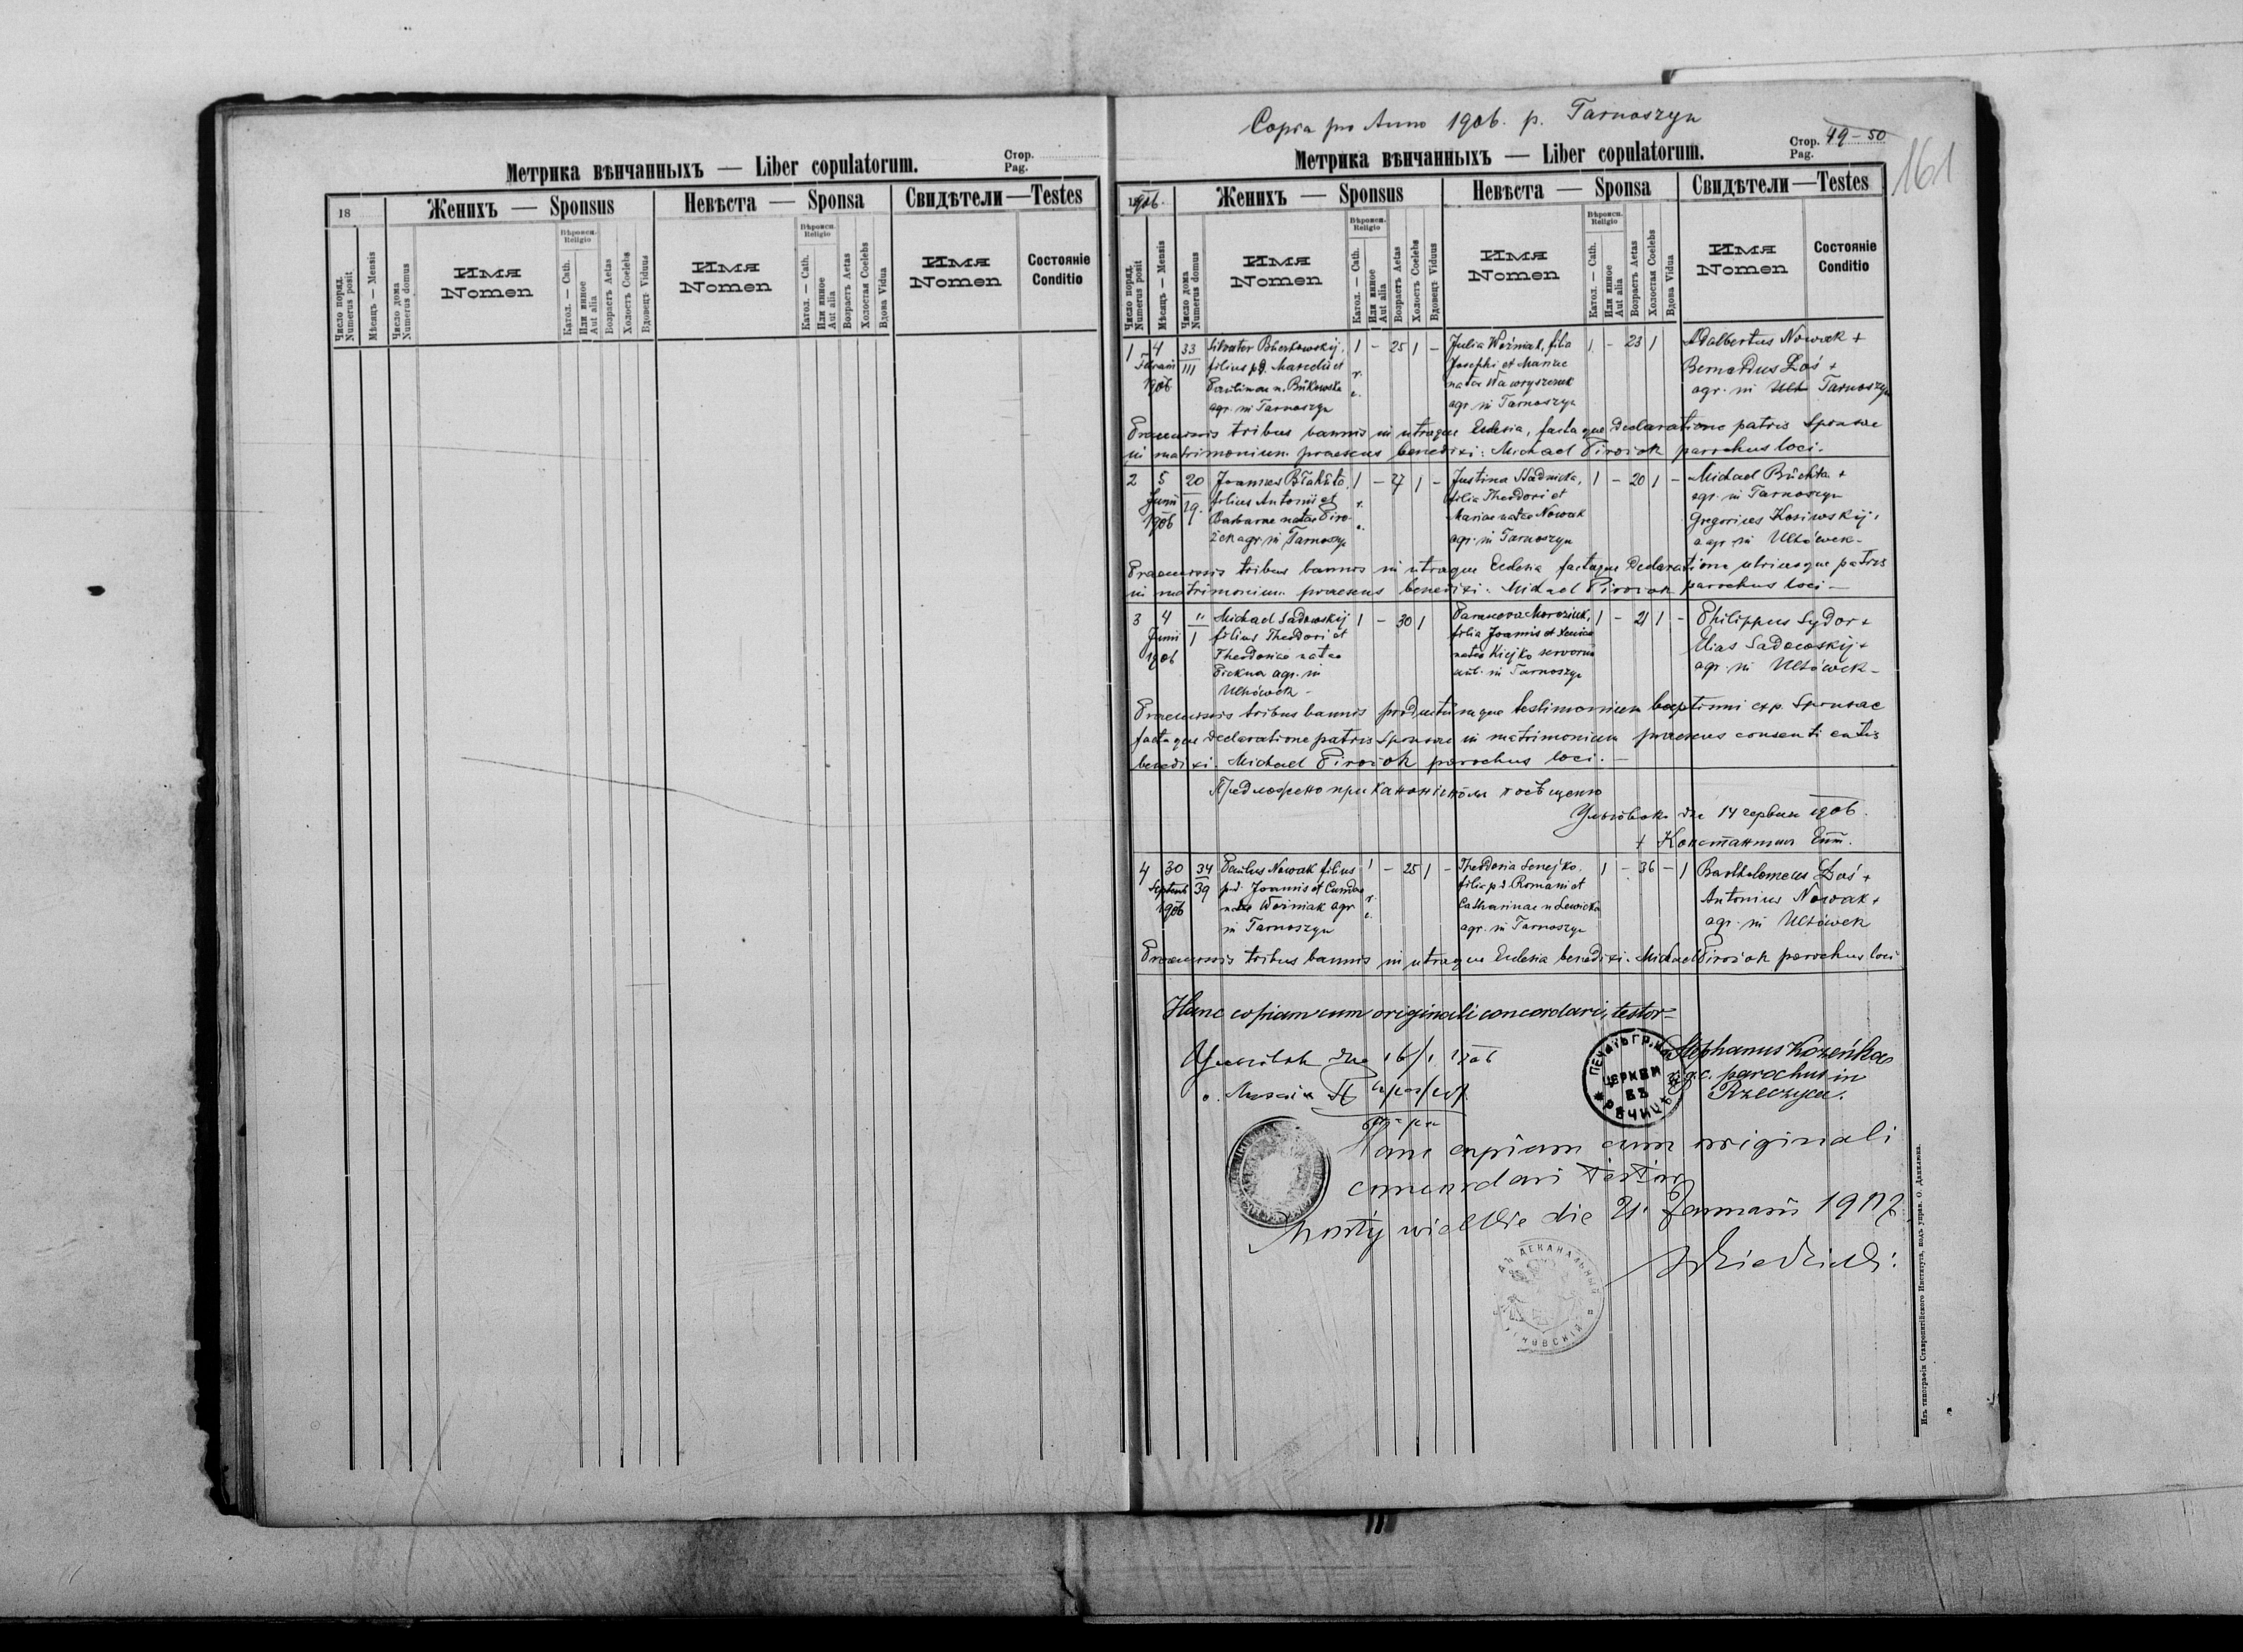 Стор.
Pag.
Метрика вѣнчанныхъ — Liber copulatorum.
18
Женихъ — Sponsus
Невѣста — Sponsa
Свидѣтели — Testes
Число поряд.
Numerus posit
Мѣсяцъ — Mensis
Число дома
Numerus domus
Имя
Nomen
Вѣроисп.
Religio
Катол. — Cath.
Или инное
Aut alia
Возрастъ Aetas
Холостъ Coelebs
Вдовецъ Viduus
Имя
Nomen
Вѣроисп.
Religio
Катол. — Cath.
Или инное
Aut alia
Возрастъ Aetas
Холостая Coelebs
Вдова Vidua
Имя
Nomen
Состояніе
Conditio
Copia pro Anno 1906. p. Tarnoszyn
Стор. 49-50
Pag.
161
Метрика вѣнчанныхъ — Liber copulatorum.
1906.
Женихъ — Sponsus
Невѣста — Sponsa
Свидѣтели — Testes
Число поряд.
Numerus posit
Мѣсяцъ — Mensis
Число дома
Numerus domus
Имя
Nomen
Вѣроисп.
Religio
Катол. — Cath.
Или инное
Aut alia
Возрастъ Aetas
Холостъ Coelebs
Вдовецъ Viduus
Имя
Nomen
Вѣроисп.
Religio
Катол. — Cath.
Или инное
Aut alia
Возрастъ Aetas
Холостая Coelebs
Вдова Vidua
Имя
Nomen
Состояніе
Conditio
1
4
1906
33
III
filius p.d. Marcelii et
agr. in Tarnoszyn
1 - 25 1 -
r.
c.
Julia Woźniak, filia
Josephi et Mariae
natae Wawryszczuk
agr. in Tarnoszyn
1 - 23 1
Adalbertus Nowak +
Bernardus Łoś +
agr. in Tarnoszyn
Praemissis tribus bannis in utraque Eclesia, factaque declaratione patris Sponsae
in matrimonium praesens benedixi: Michael Pirożok parochus loci.
2
5
Junii
1906
20
29.
Joannes
filius Antonii et
Barbarae natae Piro-
żek agr. in Tarnoszyn
1 - 27 1 -
r.
c.
Justina Stadnicka,
filia Theodori et
Mariae natae Nowak
agr. in Tarnoszyn
1 - 20 1 -
Michael Buchta +
agr. in Tarnoszyn
Gregorius
agr. in Uhnówek-
Praemissis tribus bannis in utraque Eclesia factaque declaratione utriusque patris
in matrimonium praesens benedixi. Michael Pirożok parochus loci -
3
4
Junii
1906
"
1
Michael Sadowskij
filius Theodori et
Theodosiae natae
agr. in
1 - 30 1
filia Joannis et Xeniae
natae Kiejko
in Tarnoszyn
1 - 21 1 -
Philippus Sydor +
Elias Sadowskij +
agr. in
Praemissis tribus bannis productumque testimonium baptismi exp. Sponsae
factaque declaratione patris Sponsae in matrimonium praesens consentientis
benedixi. Michael Pirożok parochus loci. -
Предложено при канонічном посѣщенію
14 червня 1906.
+ Константин Епп.
4
30
Septemb
1906
34
39
Paulus Nowak filius
p.d. Joannis et
natae Woźniak agr
in Tarnoszyn
1 - 25 1 -
r.
c.
Theodosia
filia p.d. Romani et
Catharinae n Lewicka
agr. in Tarnoszyn
1 - 36 - 1
Bartholomeus Łoś +
Antonius Nowak +
agr. in
Praemissis tribus bannis in utraque Eclesia benedixi. Michael Pirożok parochus loci
Hanc copiam cum originali concordari, testor-
Stephanus Kozeńka
g.c. parochus in
Rzeczyca.
ПЕЧАТЬ ГР. КАТ.
ЦЕРКВИ
ВЪ
РѢЧИЦѢ
Hanc copiam cum originali
concordari testor
die 21. Januarii 1907.
ДЕКАНАЛЬНЫЙ
Изъ типографіи Ставропигійского Института, подъ управ. О. Данилюка.